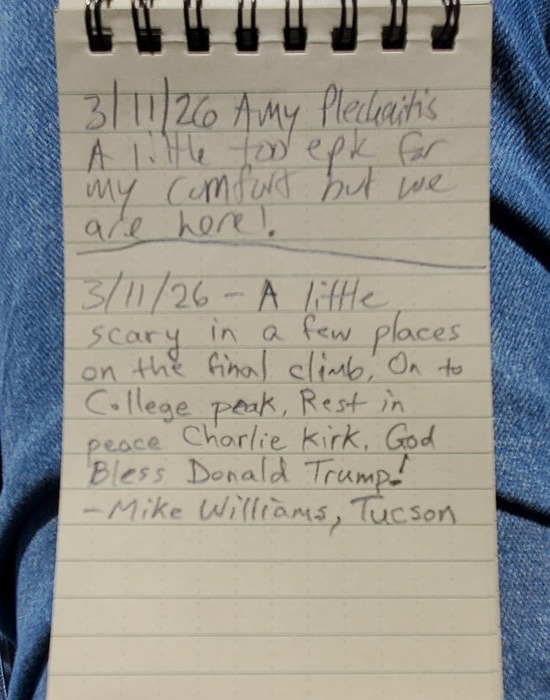 3/11/26 Amy Plechaitis
A little too epic for
my comfort but we
are here!
3/11/26 - A little
scary in a few places
on the final climb. On to
College peak. Rest in
peace Charlie Kirk. God
Bless Donald Trump!
- Mike Williams, Tucson